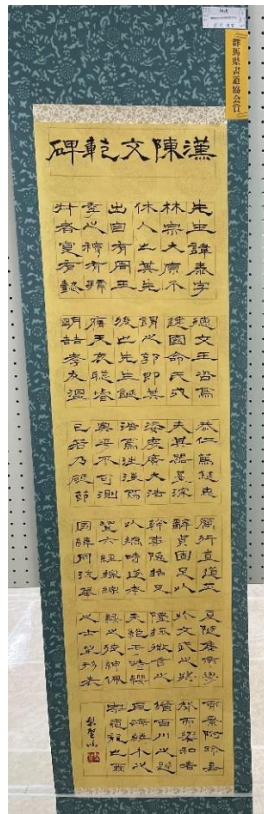 群馬県書道協会賞
漢陳文範碑
先生諱泰字
林宗太原介
休人也其先
出自有周王
季之穆有虢
叔者寔有懿
德文王咨焉
建國命氏或
謂之郭即其
後也先生誕
應天衷聰睿
明哲孝友溫
恭仁篤慈惠
夫其器量深
姿度廣大浩
浩焉汪汪焉
奧乎不可測
已若乃砥節
厲行直道正
辭貞固足以
幹事隱括足
以矯時遂考
覽六經探綜
圖緯周流華
夏隨集帝學
收文武之將
墜拯微言之
未絕于時纓
緌之徒紳佩
之士望形表
而景附聆嘉
聲而響和者
猶百川之歸
巨海鱗介之
宗龜龍也爾